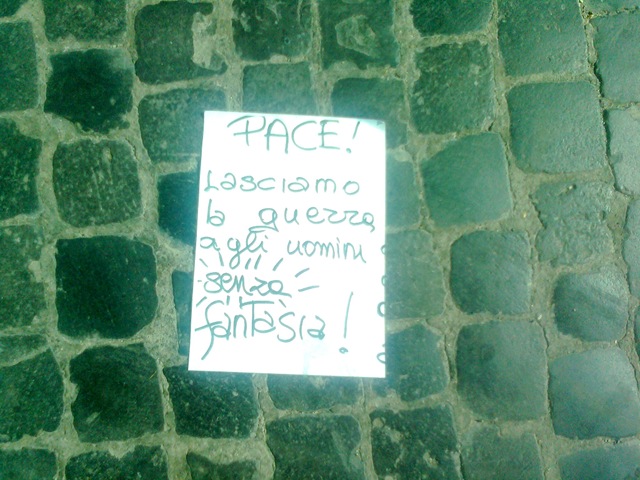 PACE!
Lasciamo
la guerra
agli uomini
senza
fantasia!